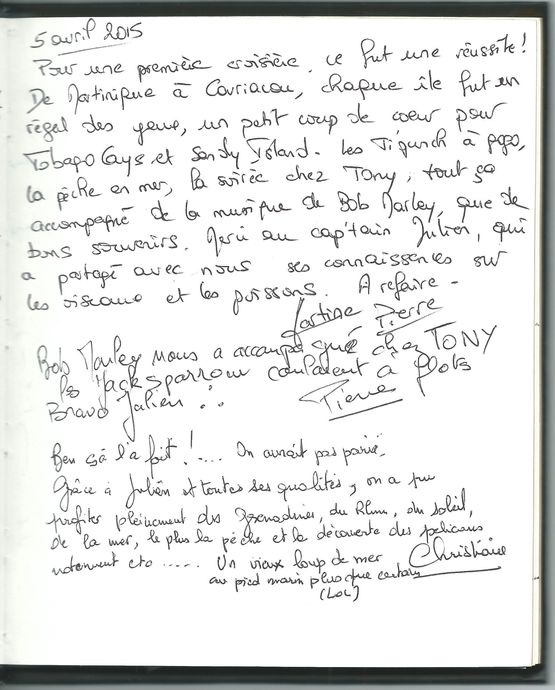 5 avril 2015
Pour une première croisière, ce fut une réussite!
De Martinique à Carriacou, chaque île fut un
régal des yeux, un petit coup de coeur pour
Tobago Cays et Sandy Island. Les Ti'punch à gogo,
la pêche en mer, la soirée chez Tony, tout ça
accompagné de la musique de Bob Marley, que de
bons souvenirs. Merci au cap'tain Julien, qui
a partagé avec nous ses connaissances sur
les oiseaux et les poissons. A refaire -
Martine Pierre
Bob Marley nous a accompagné chez TONY
les Jack Sparrow coulaient à flots
Bravo Julien !
Pierre
Ben çà l'a fait! .... On aurait pas parié.
Grâce à Julien et toutes ses qualités, on a pu
profiter pleinement des Grenadines, du Rhum, du soleil,
de la mer, le plus la pêche et la découverte des pélicans
notamment etc ..... Un vieux loup de mer Christiane
au pied marin plus que certain
(LOL)